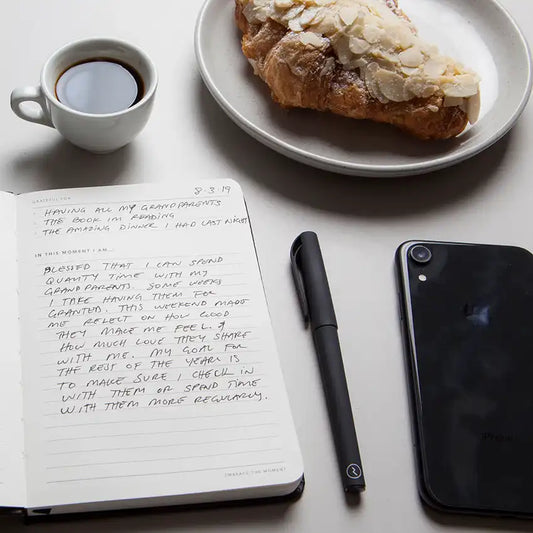 GRATEFUL FOR
8-3-19
- HAVING ALL MY GRANDPARENTS
- THE BOOK IM READING
- THE AMAZING DINNER I HAD LAST NIGHT
IN THIS MOMENT I AM...
BLESSED THAT I CAN SPEND
QUALITY TIME WITH MY
GRANDPARENTS. SOME WEEKS
I TAKE HAVING THEM FOR
GRANTED. THIS WEEKEND MADE
ME REFLECT ON HOW GOOD
THEY MAKE ME FEEL. &
HOW MUCH LOVE THEY SHARE
WITH ME. MY GOAL FOR
THE REST OF THE YEAR IS
TO MAKE SURE I CHECK IN
WITH THEM OR SPEND TIME
WITH THEM MORE REGULARLY.
EMBRACE THE MOMENT
iPhone